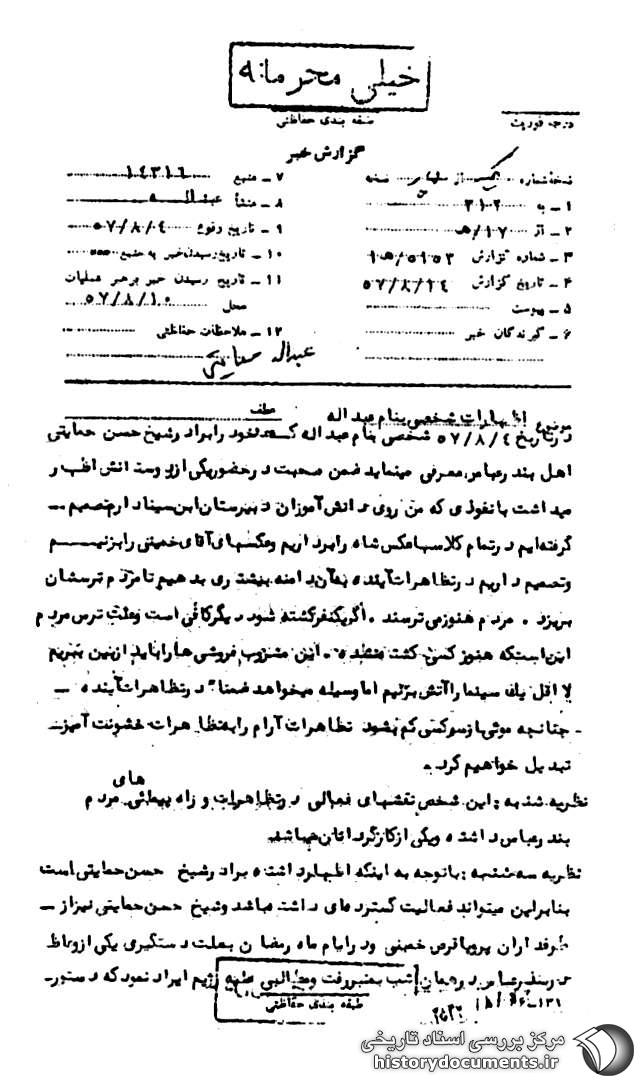 خیلی محرمانه
طبقه بندی حفاظتی
درجه فوریت
گزارش خبر
نسخه شماره یک از نسخه
۱ ـ به ۳۱۲
۲ ـ از ۱۷/هـ
۳ ـ شماره گزارش ۵۹۵۳/۱هـ
۴ ـ تاریخ گزارش ۵۷/۸/۱۴
۵ ـ پیوست
۶ ـ گیرندگان خبر
۷ ـ منبع ۱۴۳۱۶
۸ ـ منشأ عبداله
۹ ـ تاریخ وقوع ۵۷/۸/۰۴
۱۰ ـ تاریخ رسیدن خبر به منبع
۱۱ ـ تاریخ رسیدن خبر برهبر عملیات
محل ۵۷/۸/۱۰
۱۲ ـ ملاحظات حفاظتی
عبداله حمایتی
موضوع اظهارات شخصی بنام عبداله
عطف
درتاریخ ۵۷/۸/٤ شخصی بنام عبداله که خود رابرادرشیخ حسن حمایتی
اهل بندرعباس معرفی مینماید ضمن صحبت درحضوریکی ازدوستانش اظهار
میداشت بانفوذی که من روی دانش آموزان دبیرستان ابن سینا دارم تصمیم ـ
گرفته‌ایم درتمام کلاسهاعکس شاه رابرداریم وعکسهای آقای خمینی رابزنیم
وتصمیم داریم درتظاهرات آینده به آن دامنه بیشتری بدهیم تامردم ترسشان
بریزد . مردم هنوزمی ترسند . اگریکنفرکشته شود دیگرکافی است وعلت ترس مردم
این استکه هنوز کسی کشته نشده . این مشروب فروشی هارا باید ازبین ببریم
لااقل یک سینما راآتش بزنیم اما وسیله میخواهد ضمناً درتظاهرات آینده ـ
چنانچه موئی ازسرکسی کم بشود تظاهرات آرام رابه تظاهرات خشونت آمیز ـ
تبدیل خواهیم کرد .
نظریه شنبه : این شخص نقشهای فعالی درتظاهرات و راه پیمائی های مردم
بندرعباس داشته ویکی ازکارگردانان میباشد
نظریه سه شنبه : باتوجه به اینکه اظهارداشته برادرشیخ حسن حمایتی است
بنابراین میتواند فعالیت گسترده‌ای داشته باشد وشیخ حسن حمایتی نیز از ـ
طرفداران پروپاقرص خمینی ودرایام ماه رمضان بعلت دستگیری یکی ازوعاظ
دربندرعباس درهمان شب بمنبررفت ومطالبی علیه رژیم ایراد نمودکه دستور ـ
طبقه بندی حفاظتی
مرکز بررسی اسناد تاریخی
historydocuments.ir